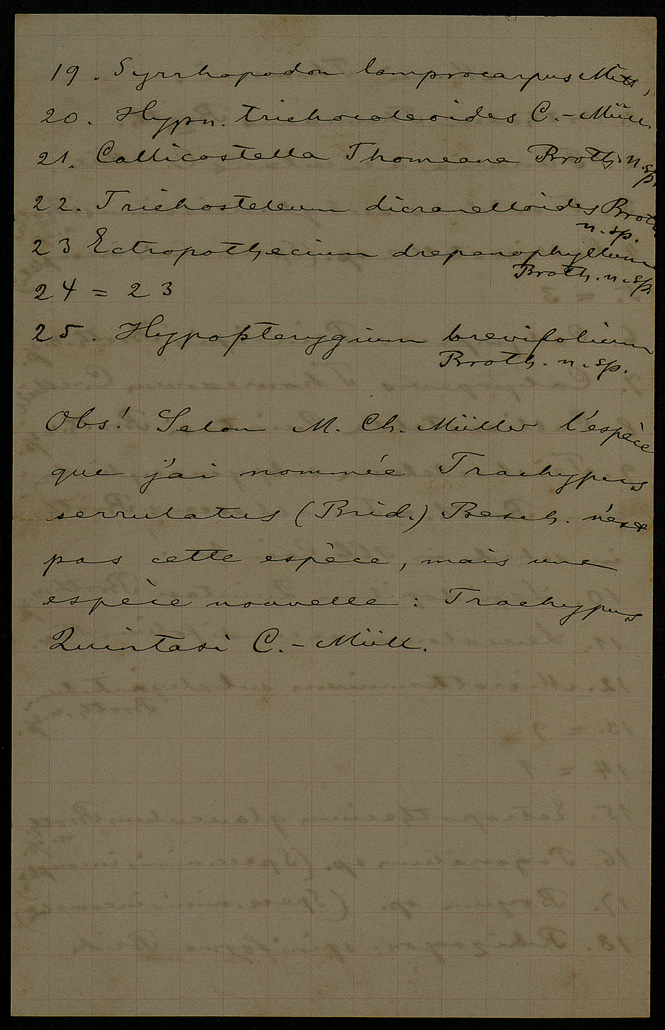 19. Syrrhopodon lamprocarpus Mitt,
20. Hypn. trichocoleoides C.-Müll.
21. Callicostella Thomeana Broth. n. sp.
22. Trichosteleum dicranelloides Broth.
n. sp.
23 Ectropothecium drepanophyllum
Broth. n. sp.
24 = 23
25. Hypopterygium brevifolium
Broth. n. sp.
Obs! Selon M. Ch. Müller l'espèce
que j'ai nommée Trachypus
serrulatus (Brid.) Besch. n'est
pas cette espèce, mais une
espèce nouvelle : Trachypus
Quintasi C.-Müll.